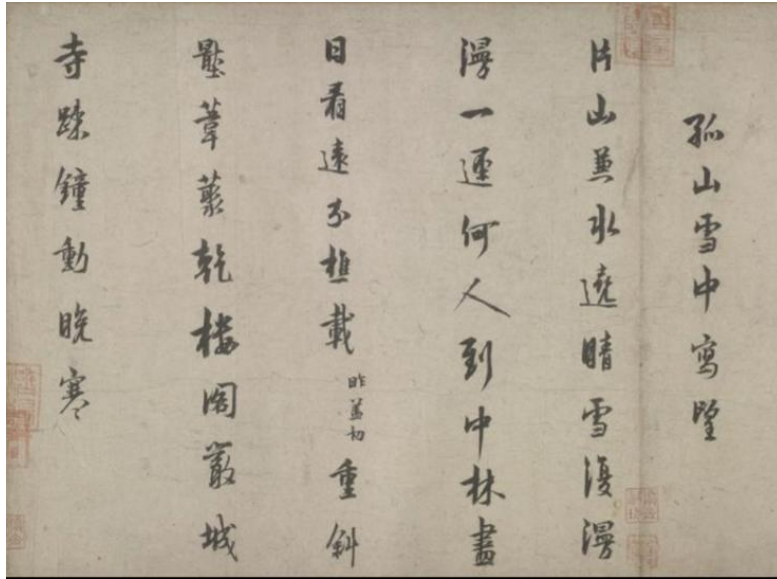 孤山雪中寫朢
片山兼水遶晴雪復漫
漫一逕何人到中林盡
日看遠分樵載昨盖切重斜
壓葦藂乾樓閣嚴城
寺踈鐘動晚寒